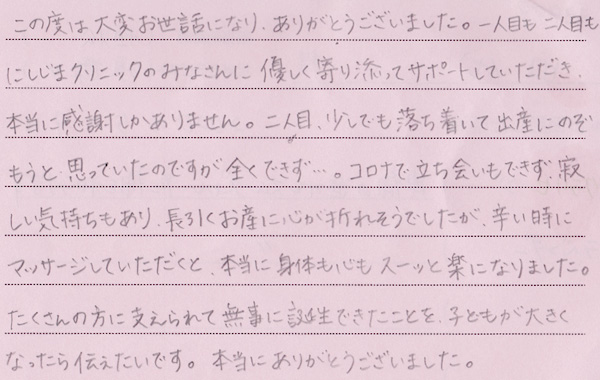 この度は大変お世話になり、ありがとうございました。一人目も二人目も
にしじまクリニックのみなさんに優しく寄り添ってサポートしていただき、
本当に感謝しかありません。二人目、少しでも落ち着いて出産にのぞ
もうと思っていたのですが全くできず…。コロナで立ち会いもできず、寂
しい気持ちもあり、長引くお産に心が折れそうでしたが、辛い時に
マッサージしていただくと、本当に身体も心もスーッと楽になりました。
たくさんの方に支えられて無事に誕生できたことを、子どもが大きく
なったら伝えたいです。本当にありがとうございました。